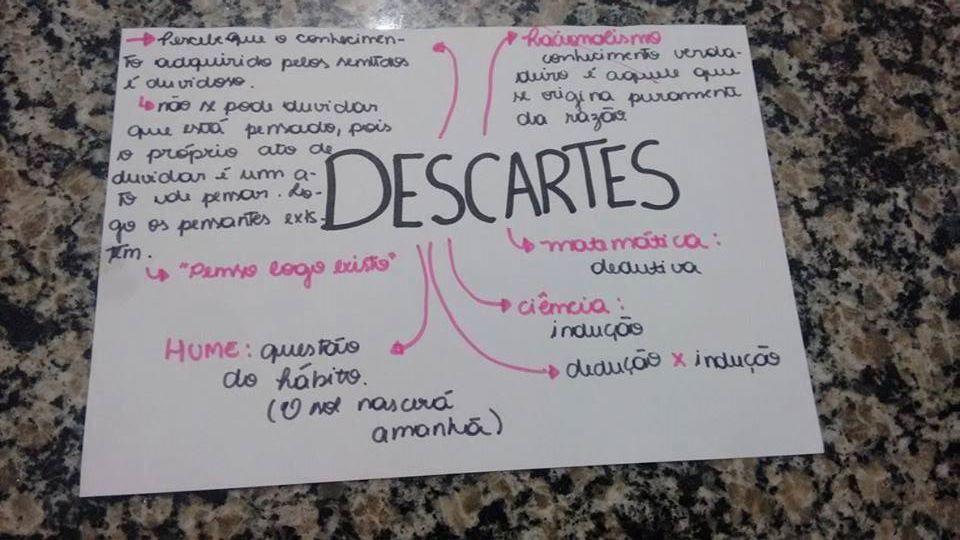 → Percebe que o conhecimen-
to adquirido pelos sentidos
é duvidoso.
↳ não se pode duvidar
que está pensado, pois
o próprio ato de
duvidar é um a-
to de pensar. Lo-
go os pensantes exis-
tem.
↳ "Penso logo existo"
Racionalismo
conhecimento verda-
deiro é aquele que
se origina purament
da razão
DESCARTES
matmática:
dedutiva
ciência:
indução
dedução x indução
HUME: questão
do hábito.
(O sol nascerá
amanhã)